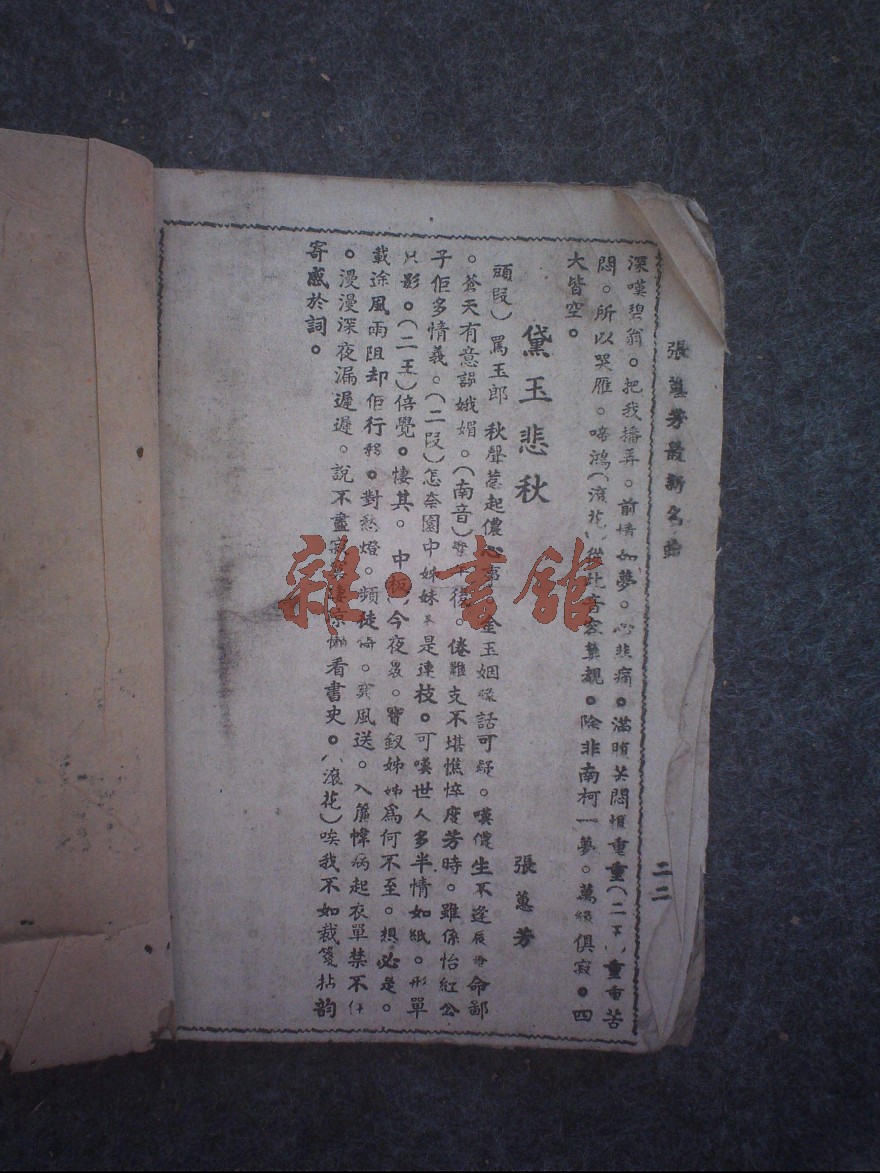 張蕙芳最新名曲
二二
深嘆碧翁。把我播弄。前情如夢。心悲痛。滿腔苦悶恨重重(二王)重重苦
悶。所以哭雁。啼鴻(滾花)從此音容莫覩。除非南柯一夢。萬緣俱寂。四
大皆空。
黛玉悲秋
張蕙芳
頭段)罵玉郎 秋聲惹起儂心事 金玉姻緣話可疑。嘆儂生不逢辰 命鄙
。蒼天有意誤娥媚。(南音) 後。倦難支不堪憔悴度芳時。雖係怡紅公
子佢多情義。(二段)怎奈園中姊妹 是連枝。可嘆世人多半情如紙。形單
隻影。(二王)倍覺。悽其。 中板)今夜 。寶釵姊姊爲何不至。想必是。
載途風雨阻却佢行 。對愁燈。頻徒倚。 風送。入簾幃病起衣單禁不
。漫漫深夜漏遲遲。說不盡寂寞淒涼懶看書史。(滾花)唉我不如裁箋拈韵
寄感於詞。
雜·書館